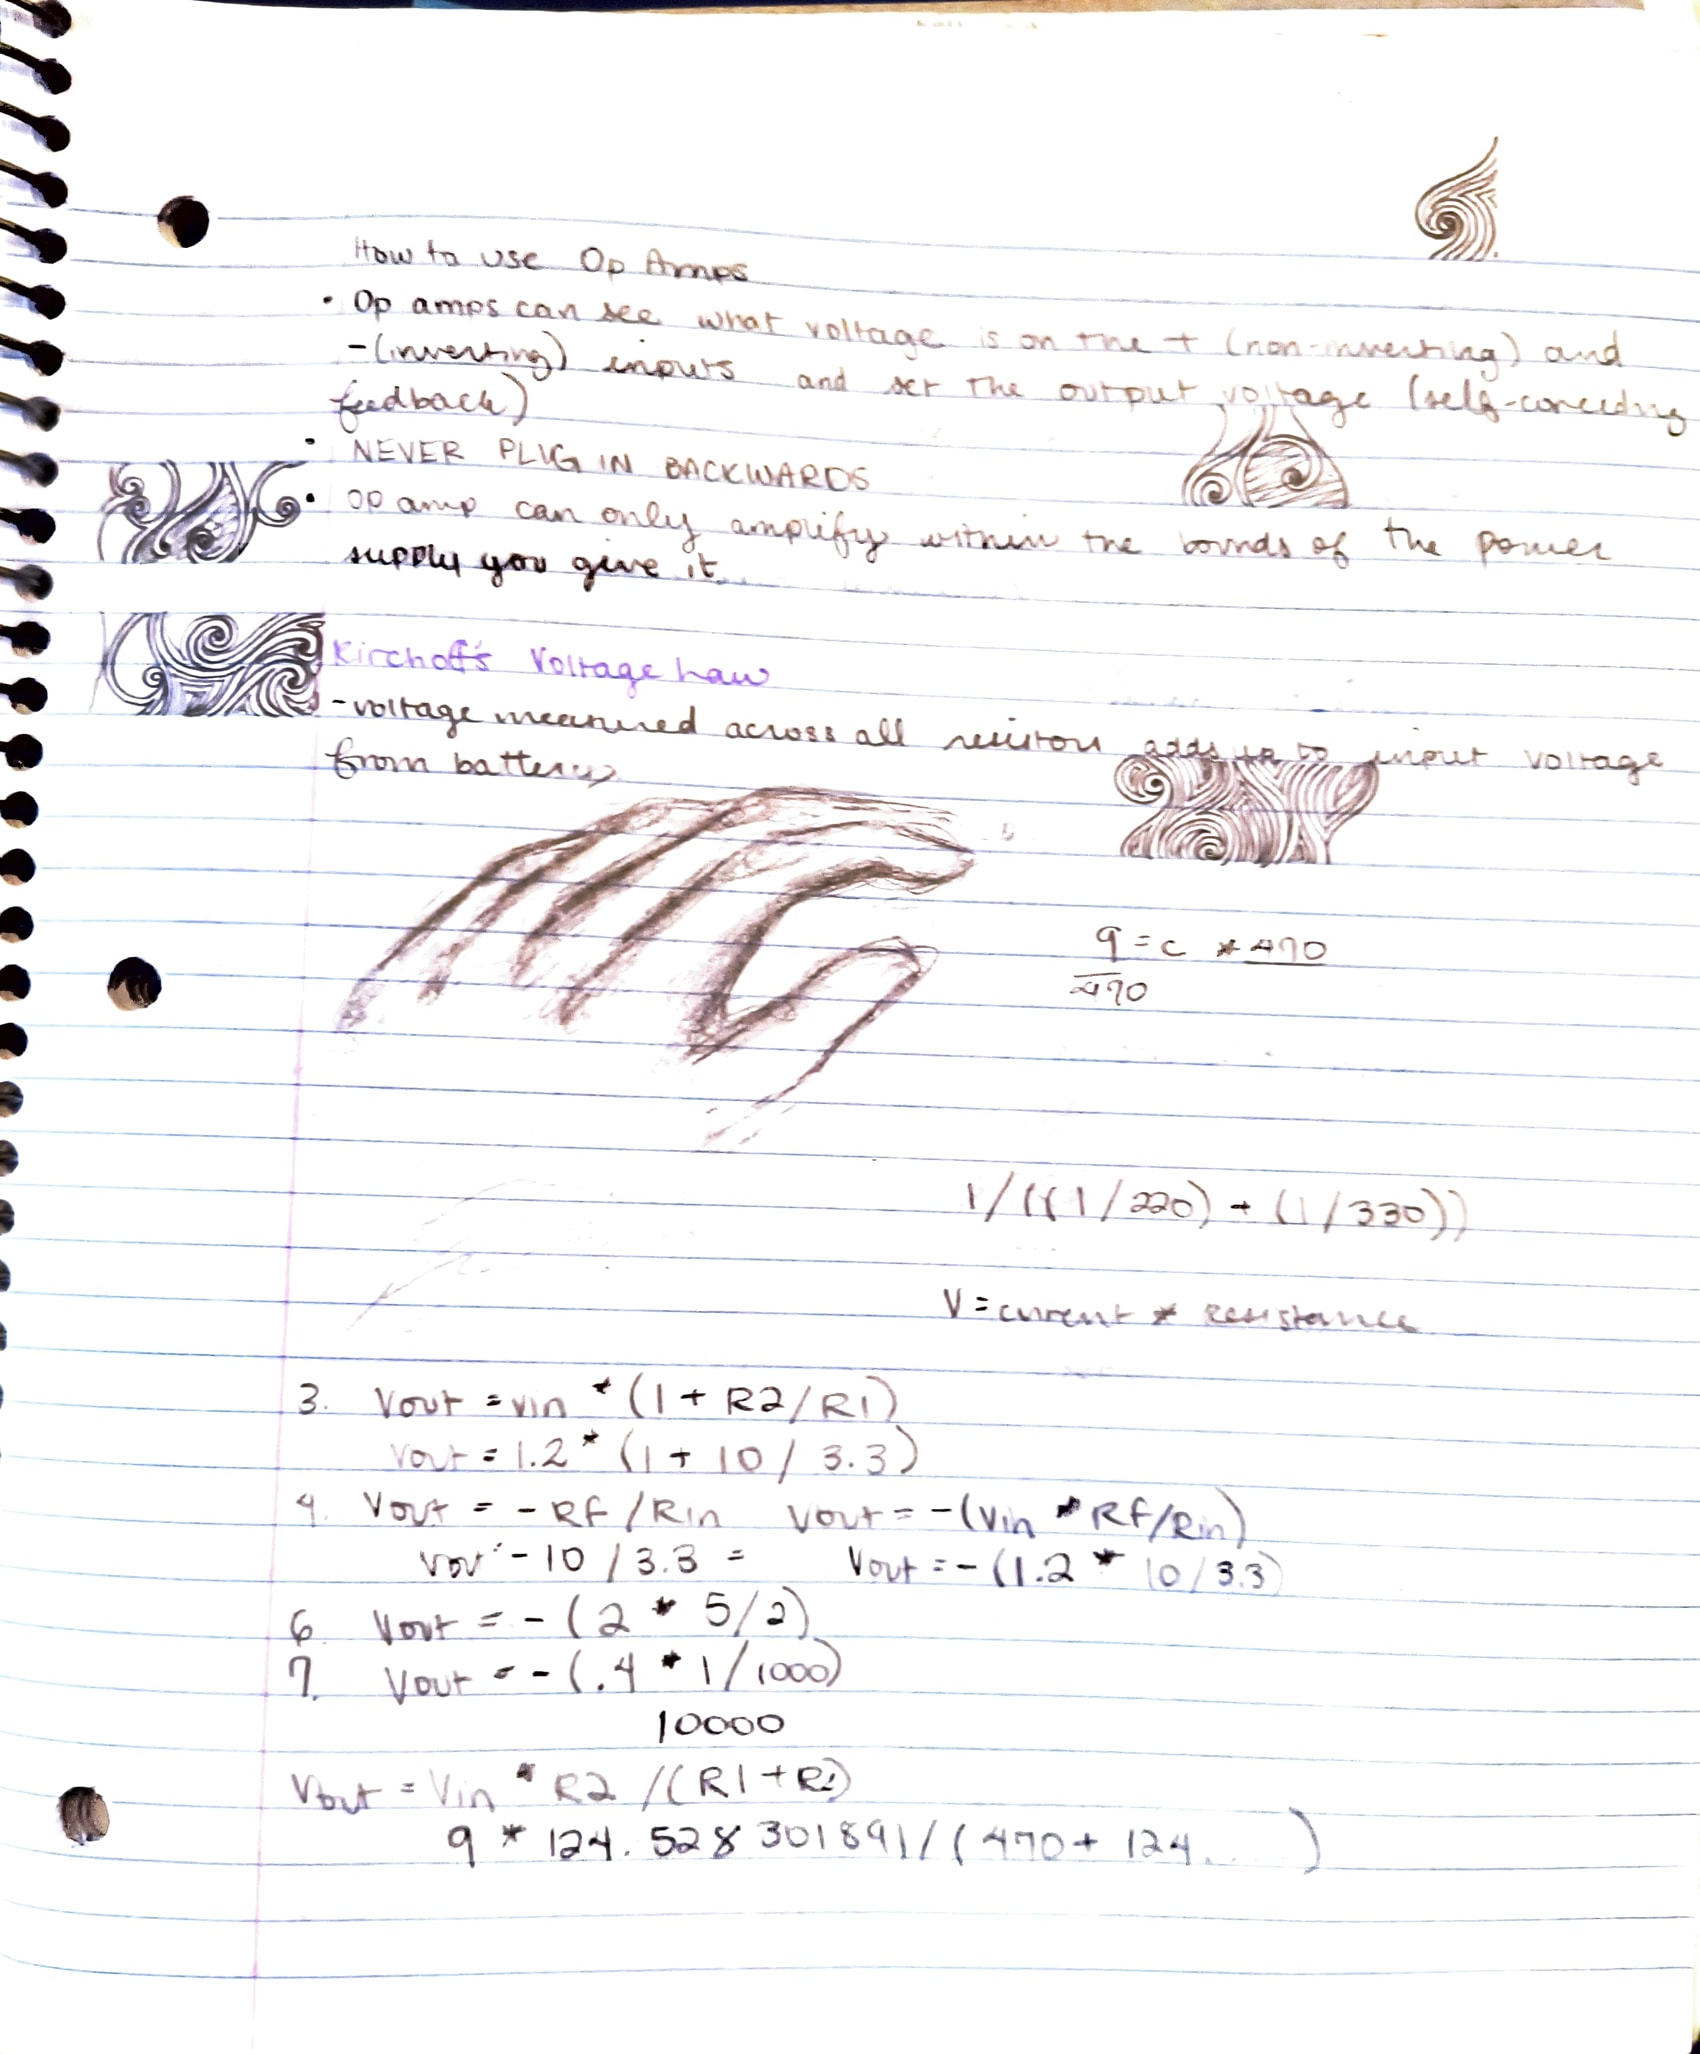 How to use Op Amps
• Op amps can see what voltage is on the + (non-inverting) and
-(inverting) inputs and set the output voltage (self-correcting
feedback)
• NEVER PLUG IN BACKWARDS
• op amp can only amplify within the bounds of the power
supply you give it
Kirchoff's Voltage Law
-voltage measured across all resistors adds up to input voltage
from battery
9 = c * 470
470
1/((1/220) + (1/330))
V = current * resistance
3. Vout = vin * (1 + R2/R1)
Vout = 1.2 * (1 + 10 / 3.3)
4. Vout = - RF / Rin Vout = -(Vin * RF/Rin)
Vout - 10 / 3.3 = Vout = - (1.2 * 10 / 3.3)
6 Vout = - (2 * 5/2)
7. Vout = - (.4 * 1/1000)
10000
Vout = Vin * R2 /(R1 + R2)
9 * 124.528301891/(470 + 124... )